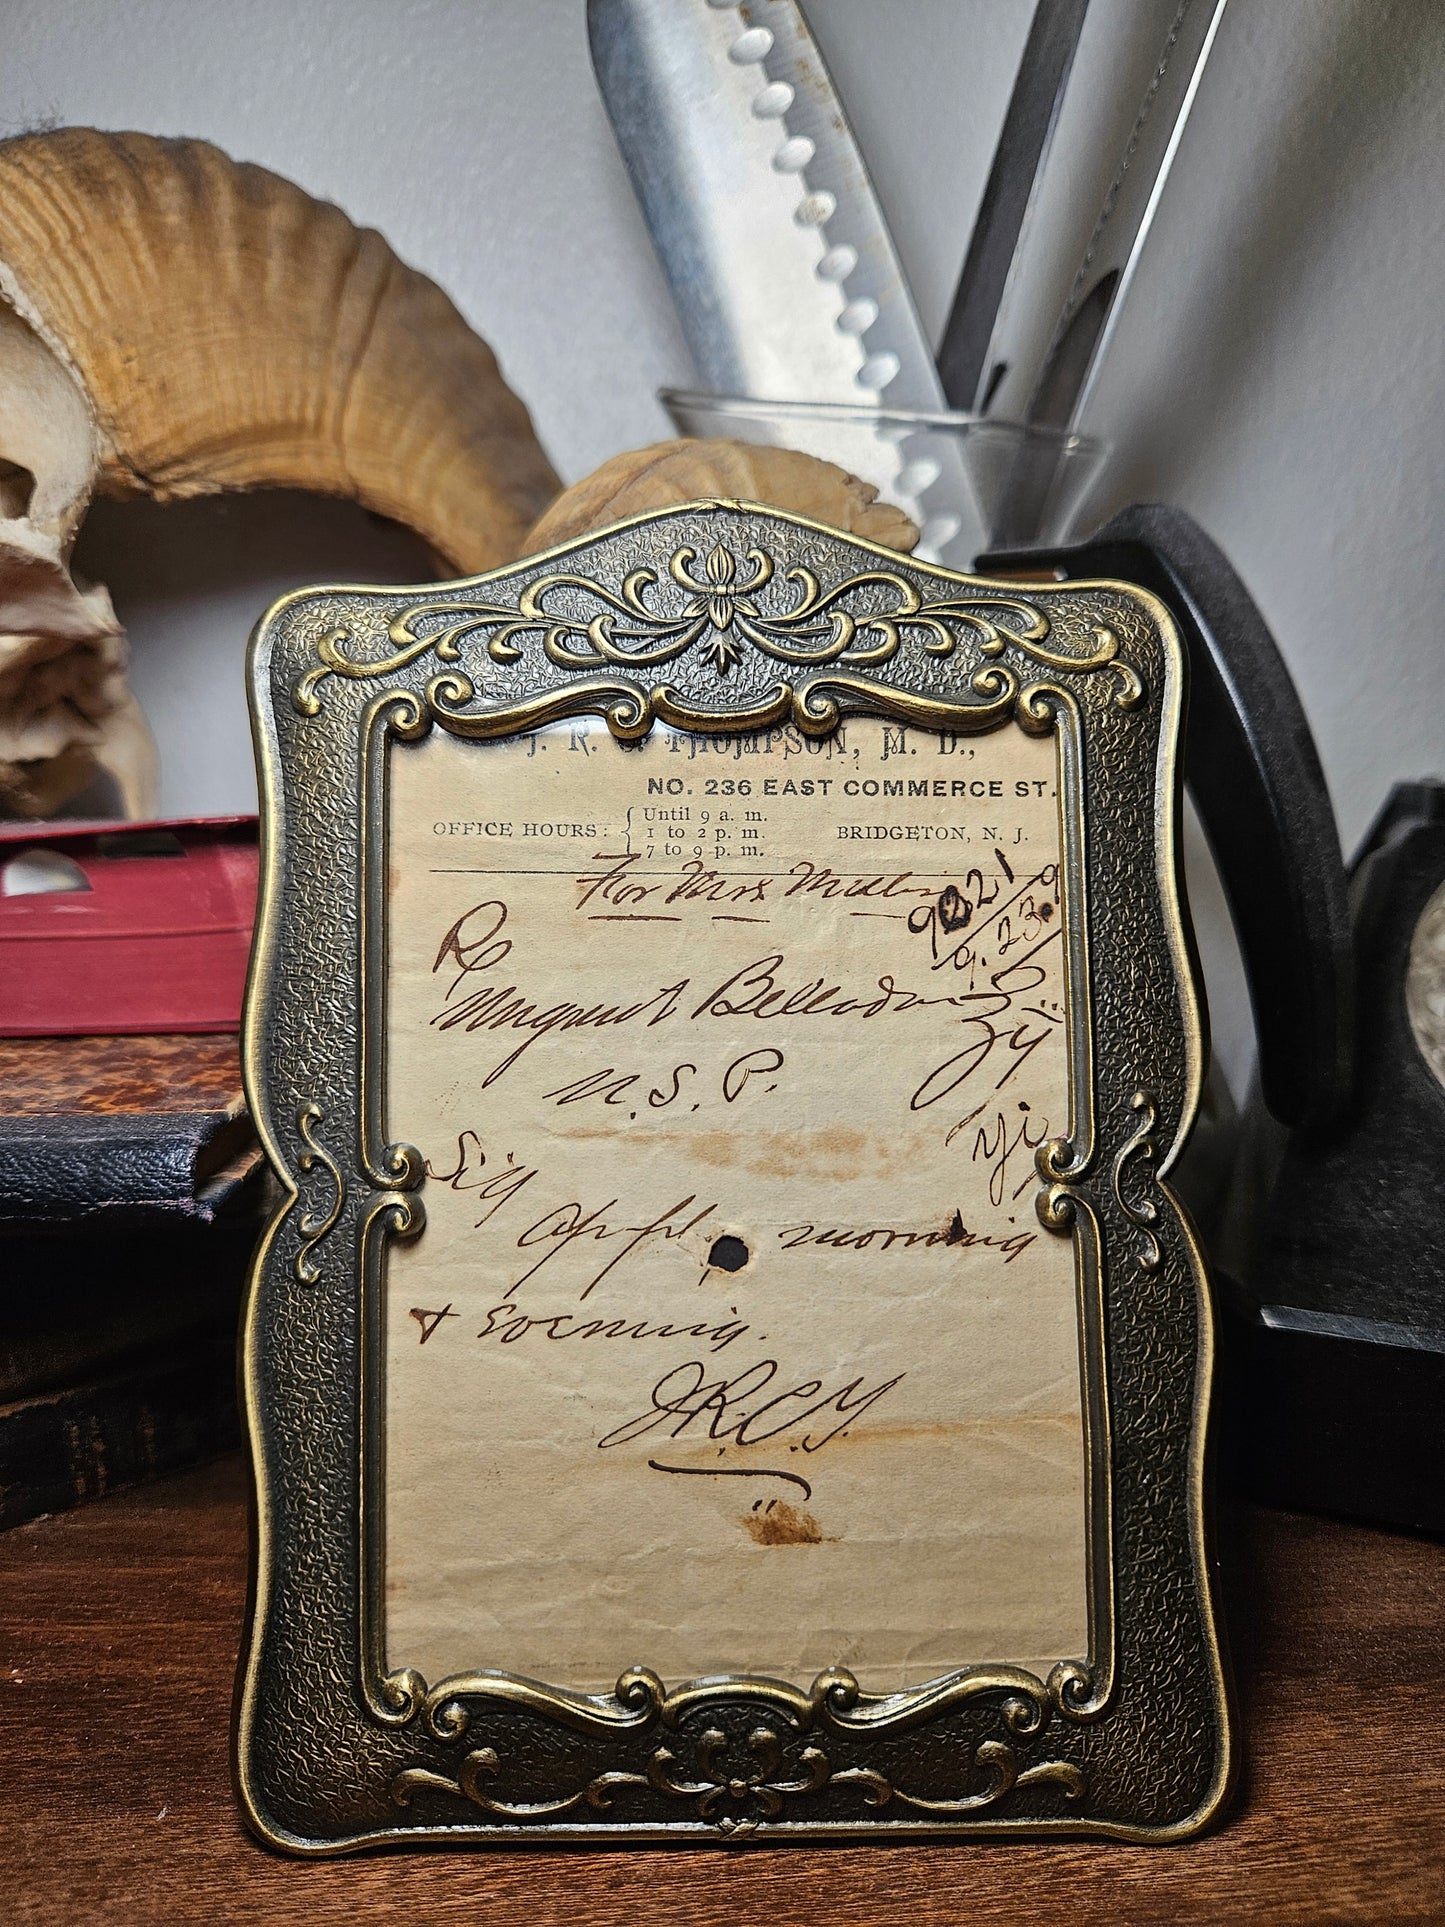 J. R. C. THOMPSON, M. D.,
NO. 236 EAST COMMERCE ST.
OFFICE HOURS: Until 9 a. m.
1 to 2 p. m.
7 to 9 p. m.
BRIDGETON, N. J.
For Mrs
9.23.9
Rx
Ungent Belladon
N.S.P.
Sig
Appl morning
+ Evening.
J.R.C.T.